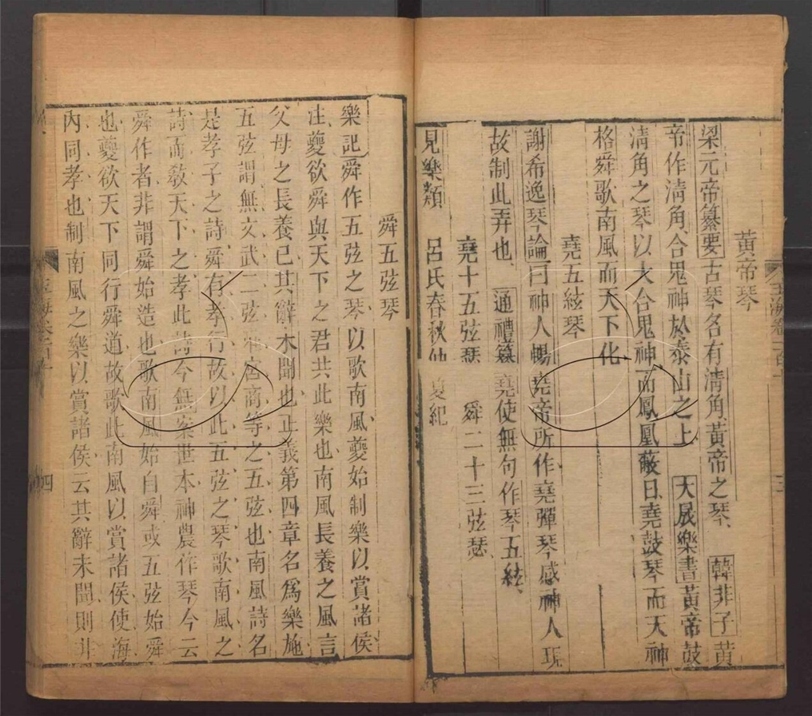 黃帝琴
梁元帝纂要古琴名有清角黃帝之琴 韓非子黃
帝作清角合鬼神於泰山之上 大晟樂書黃帝鼓
清角之琴以大合鬼神而鳳凰蔽日堯鼓琴而天神
格舜歌南風而天下化
堯五絃琴
謝希逸琴論曰神人暢堯帝所作堯彈琴感神人現
故制此弄也 通禮纂堯使無句作琴五絃
堯十五弦瑟 舜二十三弦瑟
見樂類 呂氏春秋仲夏紀
玉海卷一百十
三
舜五弦琴
樂記舜作五弦之琴以歌南風夔始制樂以賞諸侯
注夔欲舜與天下之君共此樂也南風長養之風言
父母之長養己其辭未聞也正義第四章名為樂施
五弦謂無文武二弦惟宮商等之五弦也南風詩名
是孝子之詩舜有孝行故以此五弦之琴歌南風之
詩而敎天下之孝此詩今無案世本神農作琴今云
舜作者非謂舜始造也歌南風始自舜或五弦始舜
也夔欲天下同行舜道故歌此南風以賞諸侯使海
內同孝也制南風之樂以賞諸侯云其辭未聞則非
玉海卷一百十
四